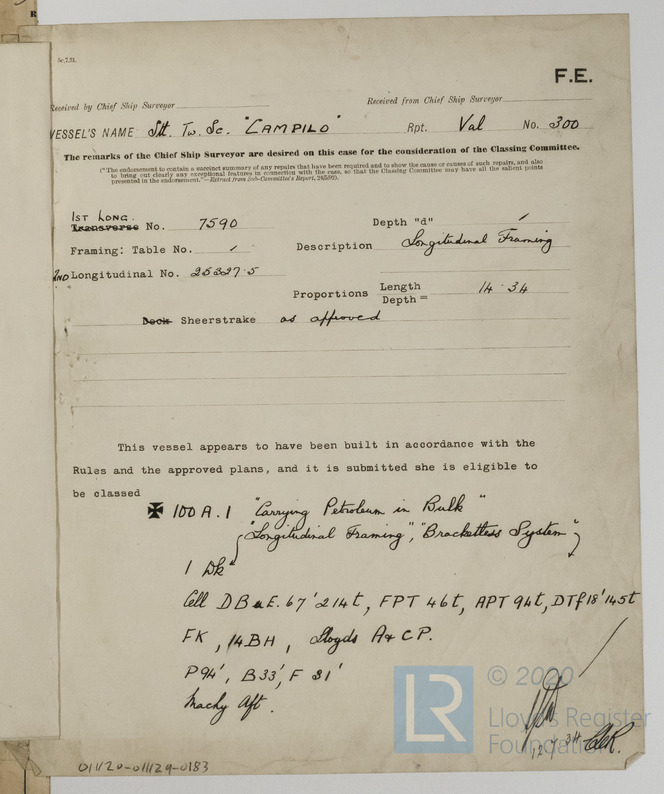 R
5c,7.31.
F.E.
Received by Chief Ship Surveyor
Received from Chief Ship Surveyor
VESSEL'S NAME Stl Tw. Sc. "CAMPILO" Rpt. Val No. 300
The remarks of the Chief Ship Surveyor are desired on this case for the consideration of the Classing Committee.
("The endorsement to contain a succinct summary of any repairs that have been required and to show the cause or causes of such repairs, and also
to bring out clearly any exceptional features in connection with the case, so that the Classing Committee may have all the salient points
presented in the endorsement."—Extract from Sub-Committee's Report,
1ST LONG.
Transverse No. 7590
Depth "d" /
Framing: Table No. /
Description Longitudinal Framing
2ND Longitudinal No. 25327.5
Proportions Length
Depth = 14.34
Deck Sheerstrake as approved
This vessel appears to have been built in accordance with the
Rules and the approved plans, and it is submitted she is eligible to
be classed
✠ 100 A.1 "Carrying Petroleum in Bulk"
"Longitudinal Framing", "Bracketless System"
1 Dk
Cell DB a E. 67' 214t, FPT 46t, APT 94t, DTf 18' 145t
FK, 14BH, Lloyds A & CP.
P94', B33', F 31'
Machy Aft.
© 2020
LR
Lloyd's Register
Foundation
12 7 34
011120-011129-0183